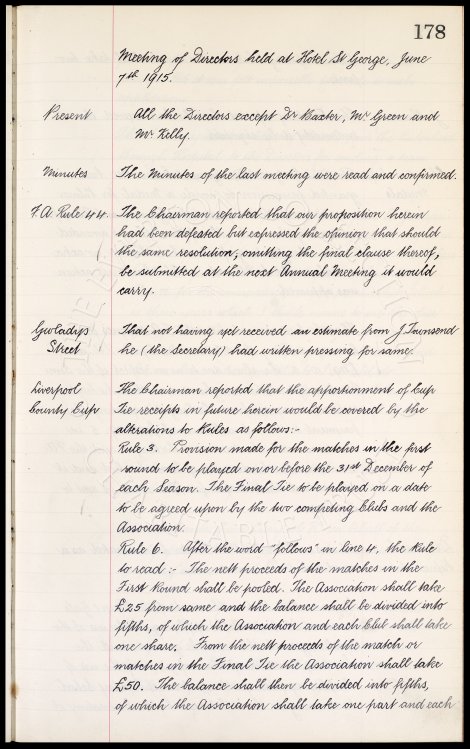 178
Meeting of Directors held at Hotel St George, June
7th 1915.
Present All the Directors except Dr Baxter, Mr Green and
Mr Kelly.
Minutes The Minutes of the last meeting were read and confirmed.
F.A. Rule 44. The Chairman reported that our proposition herein
had been defeated but expressed the opinion that should
the same resolution, omitting the final clause thereof,
be submitted at the next Annual Meeting it would
carry.
Gwladys That not having yet received an estimate from J. Townsend
Street he (the Secretary) had written pressing for same.
Liverpool The Chairman reported that the apportionment of Cup
County Cup Tie receipts in future herein would be covered by the
alterations to Rules as follows:-
Rule 3. Provision made for the matches in the first
round to be played on or before the 31st December of
each Season. The Final Tie to be played on a date
to be agreed upon by the two competing Clubs and the
Association.
Rule 6. After the word "follows" in line 4, the Rule
to read:- The nett proceeds of the matches in the
First Round shall be pooled. The Association shall take
£25 from same and the balance shall be divided into
fifths, of which the Association and each Club shall take
one share. From the nett proceeds of the match or
matches in the Final Tie the Association shall take
£50. The balance shall then be divided into fifths,
of which the Association shall take one part and each